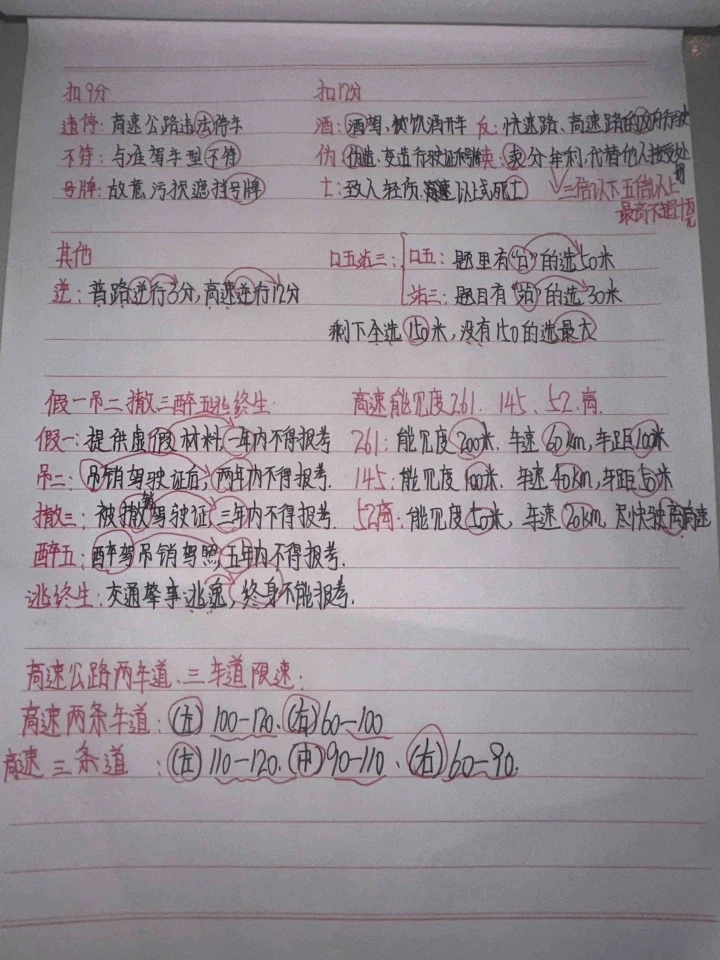 扣9分 扣12分
违停：高速公路违法停车 酒：酒驾、被饮酒开车 反：快速路、高速路的反向行驶
不符：与准驾车型不符 伪：伪造、变造行驶证 卖：卖分牟利，代替他人接受处罚
号牌：故意污损遮挡号牌 亡：致人轻伤以上或死亡 三倍以下五倍以上
最高不超十万元
其他 口五站三：口五：题里有“口”的选50米
逆：普路逆行3分，高速逆行12分 站三：题目有“站”的选30米
剩下全选150米，没有150的选最大
假一吊二撤三醉五逃终生 高速能见度261．145、52．离．
假一：提供虚假材料，一年内不得报考 261：能见度200米．车速60km，车距100米
吊二：吊销驾驶证后，两年内不得报考． 145：能见度100米．车速40km，车距50米
撤三：被撤销驾驶证，三年内不得报考． 52离：能见度50米，车速20km，尽快驶离高速
醉五：醉驾吊销驾照，五年内不得报考．
逃终生：交通肇事逃逸，终身不能报考．
高速公路两车道、三车道限速：
高速两条车道：(左)100-120、(右)60-100
高速三条道：(左)110-120、(中)90-110、(右)60-90．